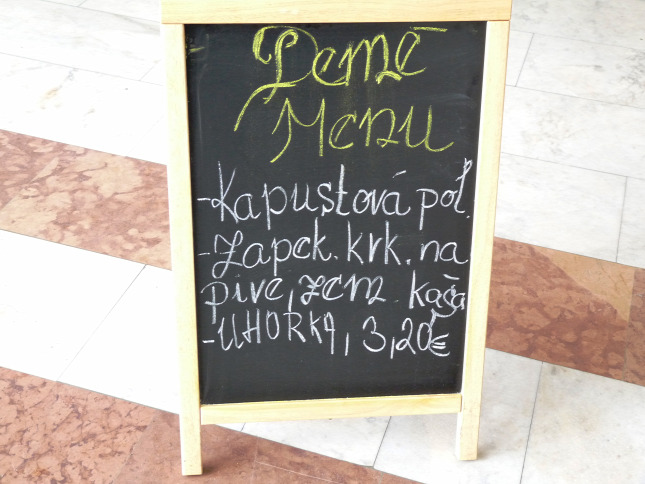 Demé
Menu
-Kapustová pol.
-Zapek. krk. na
pive, zem. kaša
-UHORKA, 3,20€